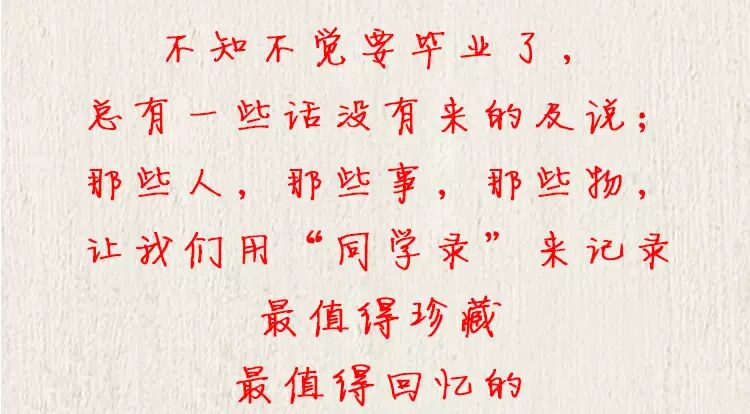 不知不觉要毕业了，
总有一些话没有来的及说；
那些人，那些事，那些物，
让我们用“同学录”来记录
最值得珍藏
最值得回忆的